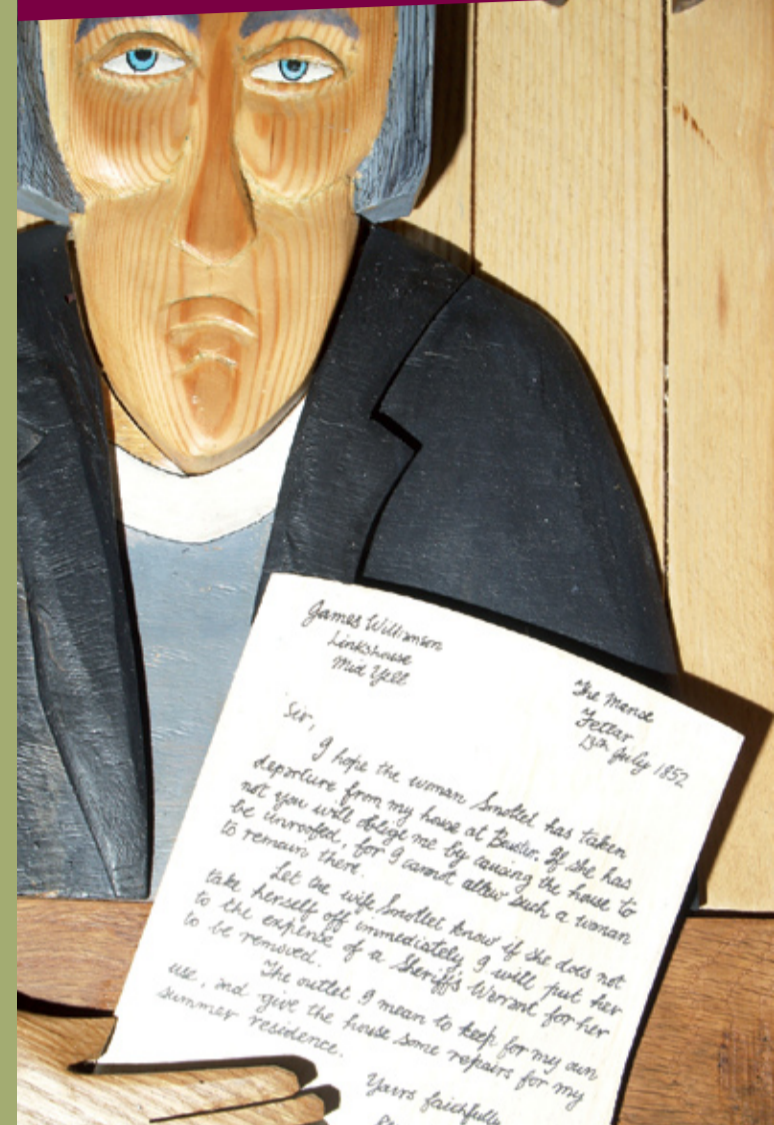 James Williamson
Linkshouse
Mid Yell
The Manse
Fetlar
13th July 1852
Sir,
I hope the woman Smollet has taken
departure from my house at Buster. If she has
not you will oblige me by causing the house to
be unroofed, for I cannot allow such a woman
to remain there.
Let the wife Smollet know if she does not
take herself off immediately I will put her
to the expense of a Sheriffs Warrant for her
to be removed.
The outlet I mean to keep for my own
use, and give the house some repairs for my
summer residence.
Yours faithfully